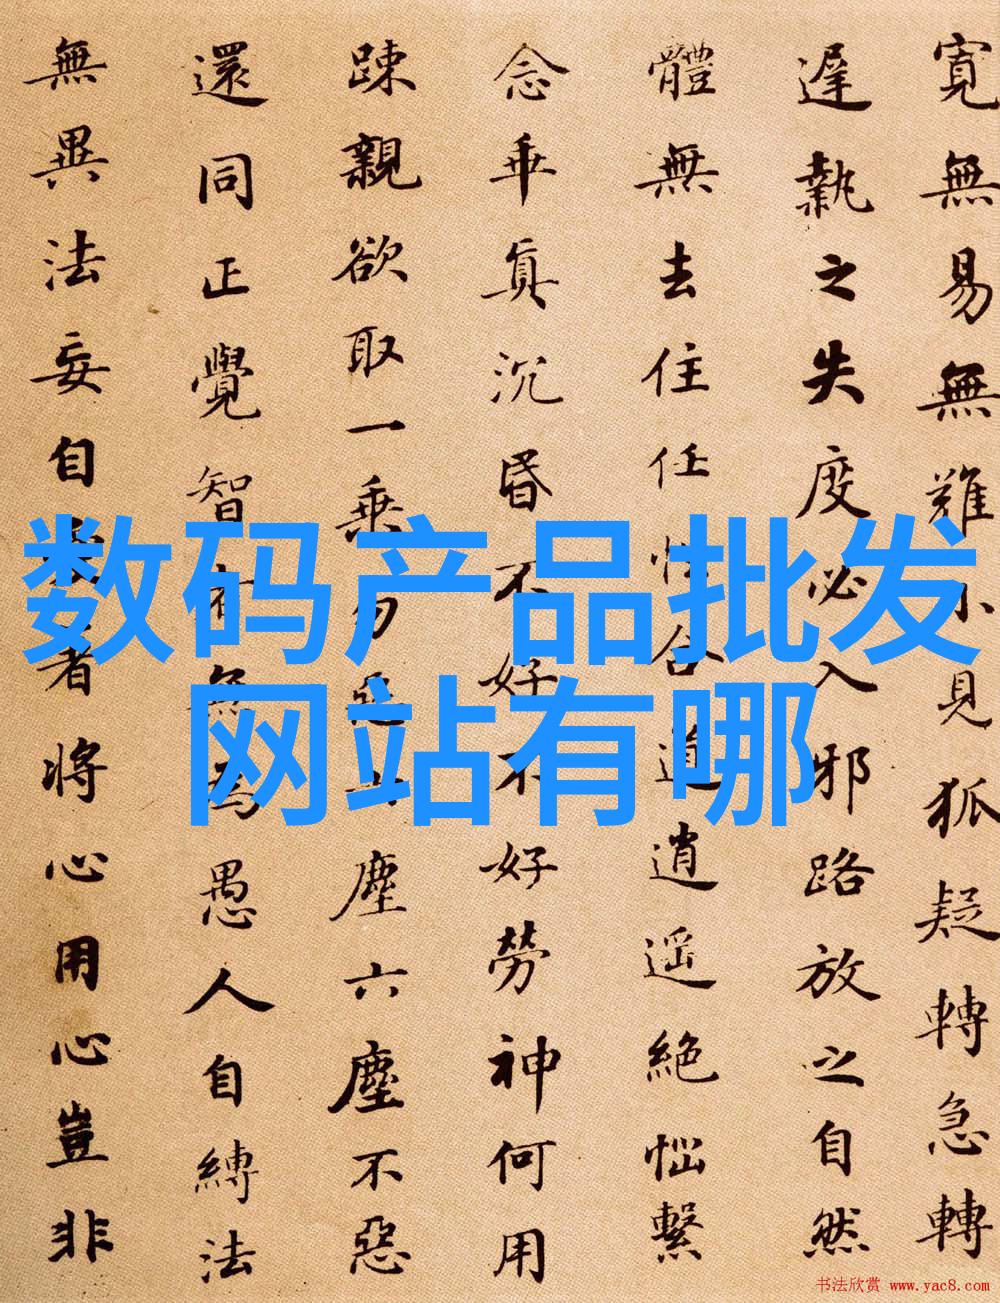 数码产品批发
网站有哪
寬無易無難小見狐疑轉急轉
遲執之失度必入邪路放之自然
體無去住任性合道逍遥絕惱繫
念乖真沉昏不好不好勞神何用
踈親欲取一乘勿惡六塵六塵不惡
還同正覺智無為愚人自縛法
無異法妄自著將心用心豈非
书法欣赏 www.yac8.com